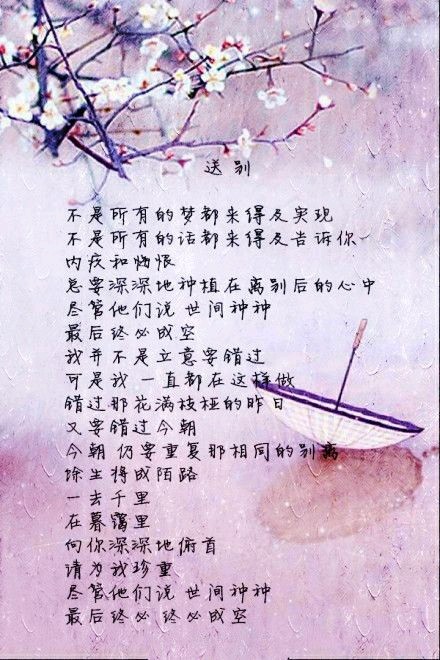 送别
不是所有的梦都来得及实现
不是所有的话都来得及告诉你
内疚和悔恨
总要深深地种植在离别后的心中
尽管他们说 世间种种
最后终必成空
我并不是立意要错过
可是我 一直都在这样做
错过那花满枝桠的昨日
又要错过今朝
今朝 仍要重复那相同的别离
馀生将成陌路
一去千里
在暮霭里
向你深深地俯首
请为我珍重
尽管他们说 世间种种
最后终必 终必成空